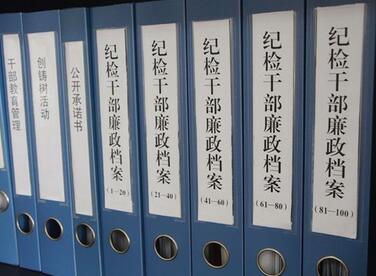 干部教育管理
创铸树活动
公开承诺书
纪检干部廉政档案
(1—20)
纪检干部廉政档案
(21—40)
纪检干部廉政档案
(41—60)
纪检干部廉政档案
(61—80)
纪检干部廉政档案
(81—100)